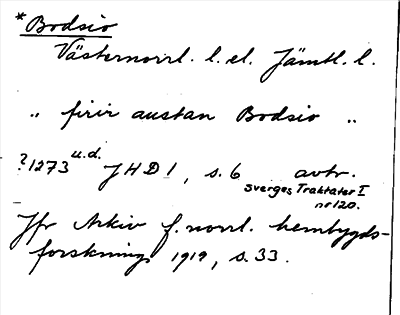 * Bodsio
Västernorrl. l. el. Jämtl. l.
„ firir austan Bodsio „
?1273 u.d. JHD1, s. 6 avtr.
Sverges Traktater I
nr 120.
Jfr Arkiv f. norrl. hembygds-
forskning 1919, s. 33.